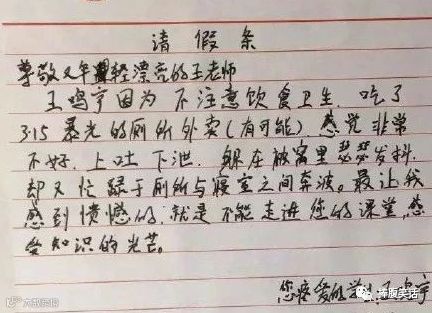 请假条
尊敬又年轻漂亮的王老师
王鸣宇因为不注意饮食卫生,吃了
3.15暴光的厕所外卖(有可能),感觉非常
不好,上吐下泄,躲在被窝里瑟瑟发抖,
却又忙碌于厕所与寝室之间奔波。最让我
感到愤憾的,就是不能走进您的课堂,感
受知识的光芒。
您疼爱的学生王鸣宇
大叔爱搞
捧腹笑话